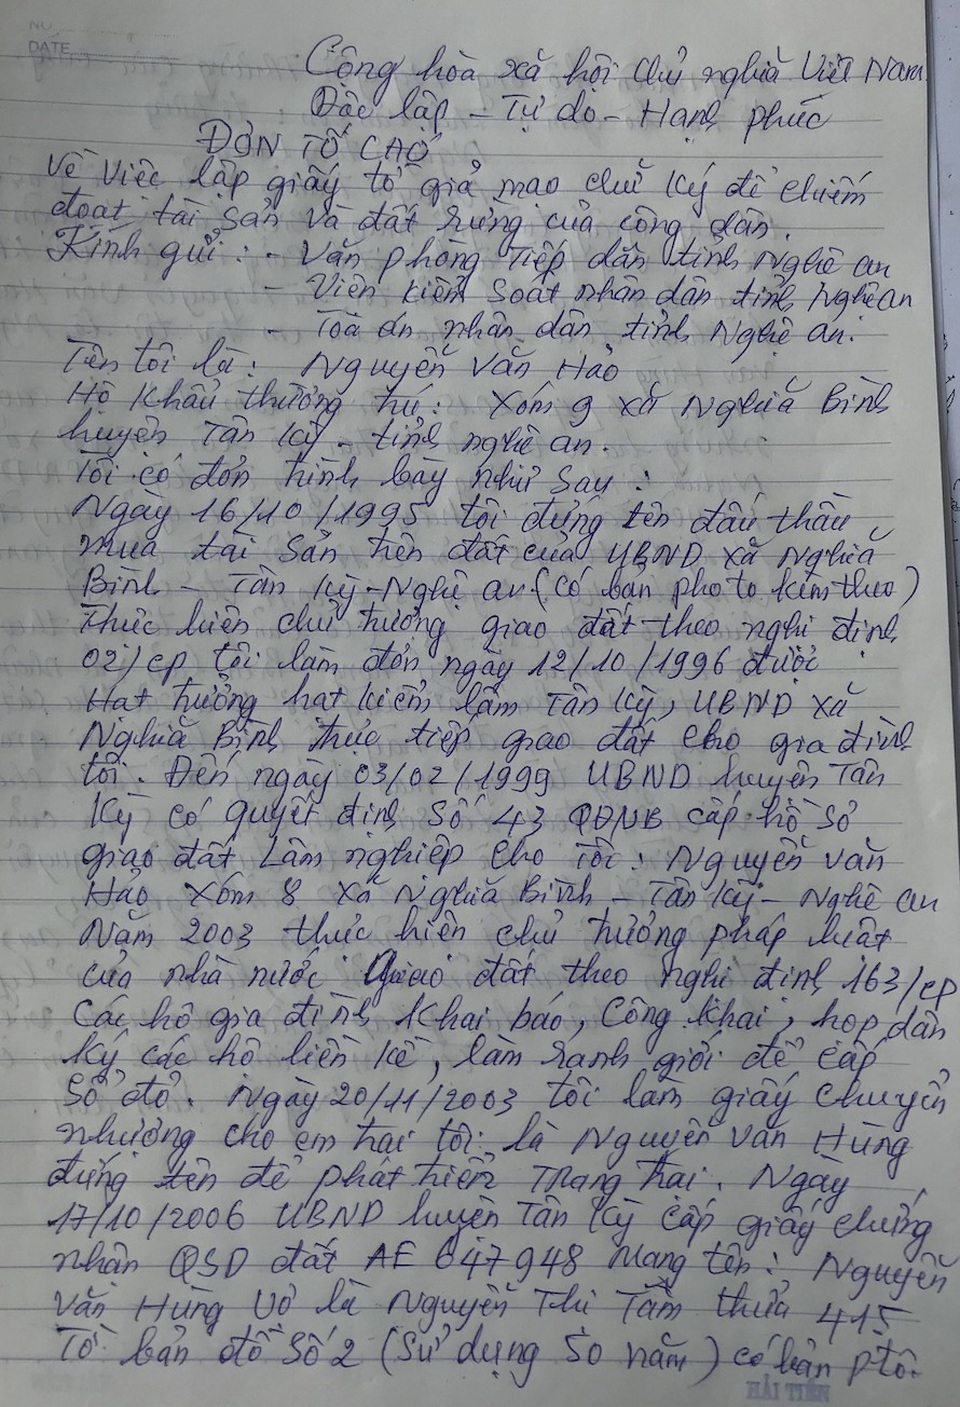 NO
DATE
Cộng hòa xã hội chủ nghĩa Việt Nam
Độc lập - Tự do - Hạnh phúc
ĐƠN TỐ CÁO
Về việc lập giấy tờ giả mạo chữ ký để chiếm
đoạt tài sản và đất rừng của công dân.
Kính gửi: - Văn phòng Tiếp dân tỉnh Nghệ an
- Viện kiểm soát nhân dân tỉnh Nghệ an
- Toà án nhân dân tỉnh Nghệ an.
Tên tôi là: Nguyễn Văn Hảo
Hộ khẩu thường trú: Xóm 9 xã Nghĩa Bình
huyện Tân Kỳ - tỉnh nghệ an.
Tôi có đơn trình bày như sau:
Ngày 16/10/1995 tôi đứng tên đấu thầu
mua tài sản trên đất của UBND xã Nghĩa
Bình - Tân Kỳ - Nghệ an (có bản photo kèm theo)
Thực hiện chủ trương giao đất theo nghị định
02/cp tôi làm đơn ngày 12/10/1996 được
Hạt trưởng hạt kiểm lâm Tân Kỳ, UBND xã
Nghĩa Bình trực tiếp giao đất cho gia đình
tôi. Đến ngày 03/02/1999 UBND huyện Tân
Kỳ có quyết định số 43 QĐNB cấp hồ sơ
giao đất Lâm nghiệp cho tôi: Nguyễn văn
Hảo xóm 8 xã Nghĩa Bình - Tân Kỳ - Nghệ an
Năm 2003 thực hiện chủ trương pháp luật
của nhà nước Giao đất theo nghị định 163/cp
Các hộ gia đình khai báo, công khai, họp dân
ký các hộ liền kề, làm ranh giới để cấp
Sổ đỏ. Ngày 20/11/2003 tôi làm giấy chuyển
nhượng cho em trai tôi là Nguyễn văn Hùng
đứng tên để phát triển Trang trại. Ngày
17/10/2006 UBND huyện Tân Kỳ cấp giấy chứng
nhận QSD đất AE 647948 Mang tên: Nguyễn
văn Hùng vợ là Nguyễn Thị Tâm thửa 415
Tờ bản đồ số 2 (Sử dụng 50 năm) có bản ptô.
HẢI TIẾN